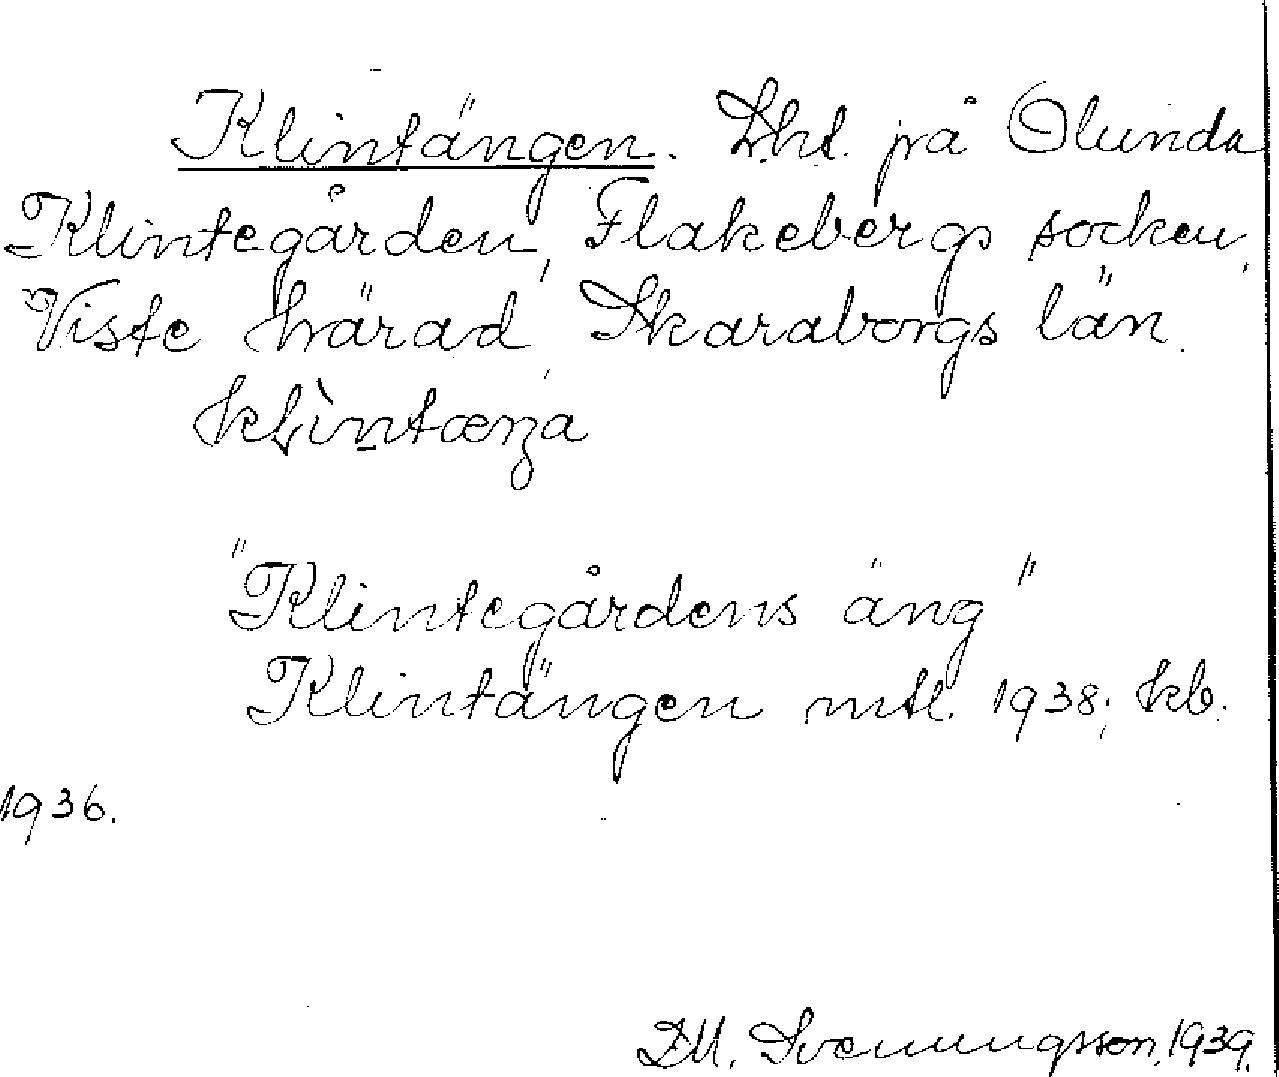 Klintängen. Lht. på Olunda
Klintegården, Flakebergs socken,
Viste härad, Skaraborgs län.
klìntæŋa
"Klintegårdens äng"
Klintängen mtl. 1938; kb.
1936.
D.M. Svenungsson, 1939.